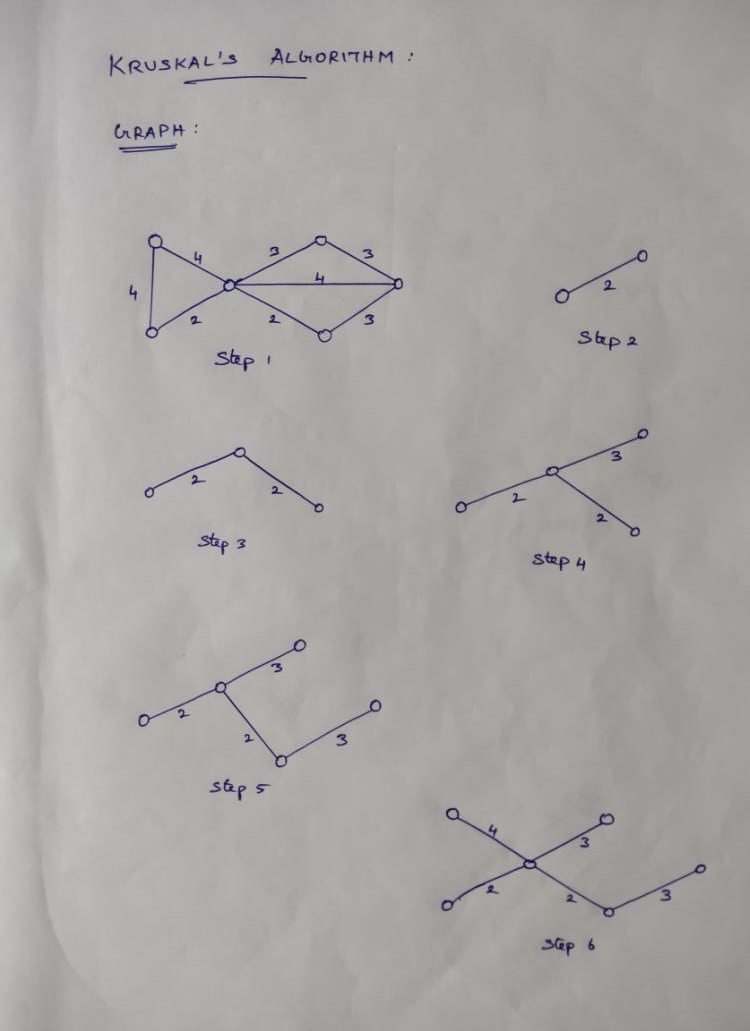 KRUSKAL'S ALGORITHM :
GRAPH :
4 3 3
4 4
2 2 3
Step 1
2
Step 2
2 2
Step 3
3
2 2
Step 4
3
2 2 3
Step 5
4 3
2 2 3
Step 6